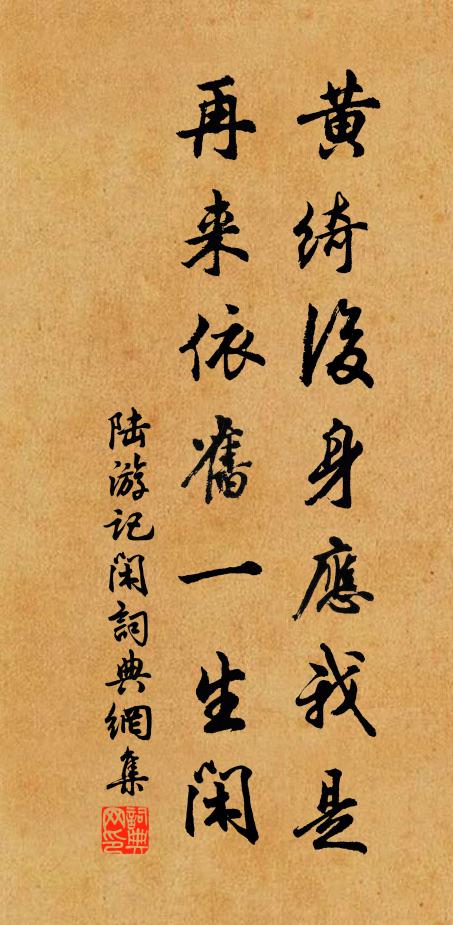 黄綺後身應我是
再来依舊一生閑
陆游记閑詞典網集
詞典網印